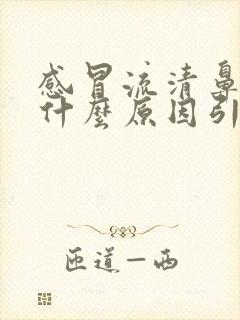 感冒流清鼻
什麼原因引
匝道一西